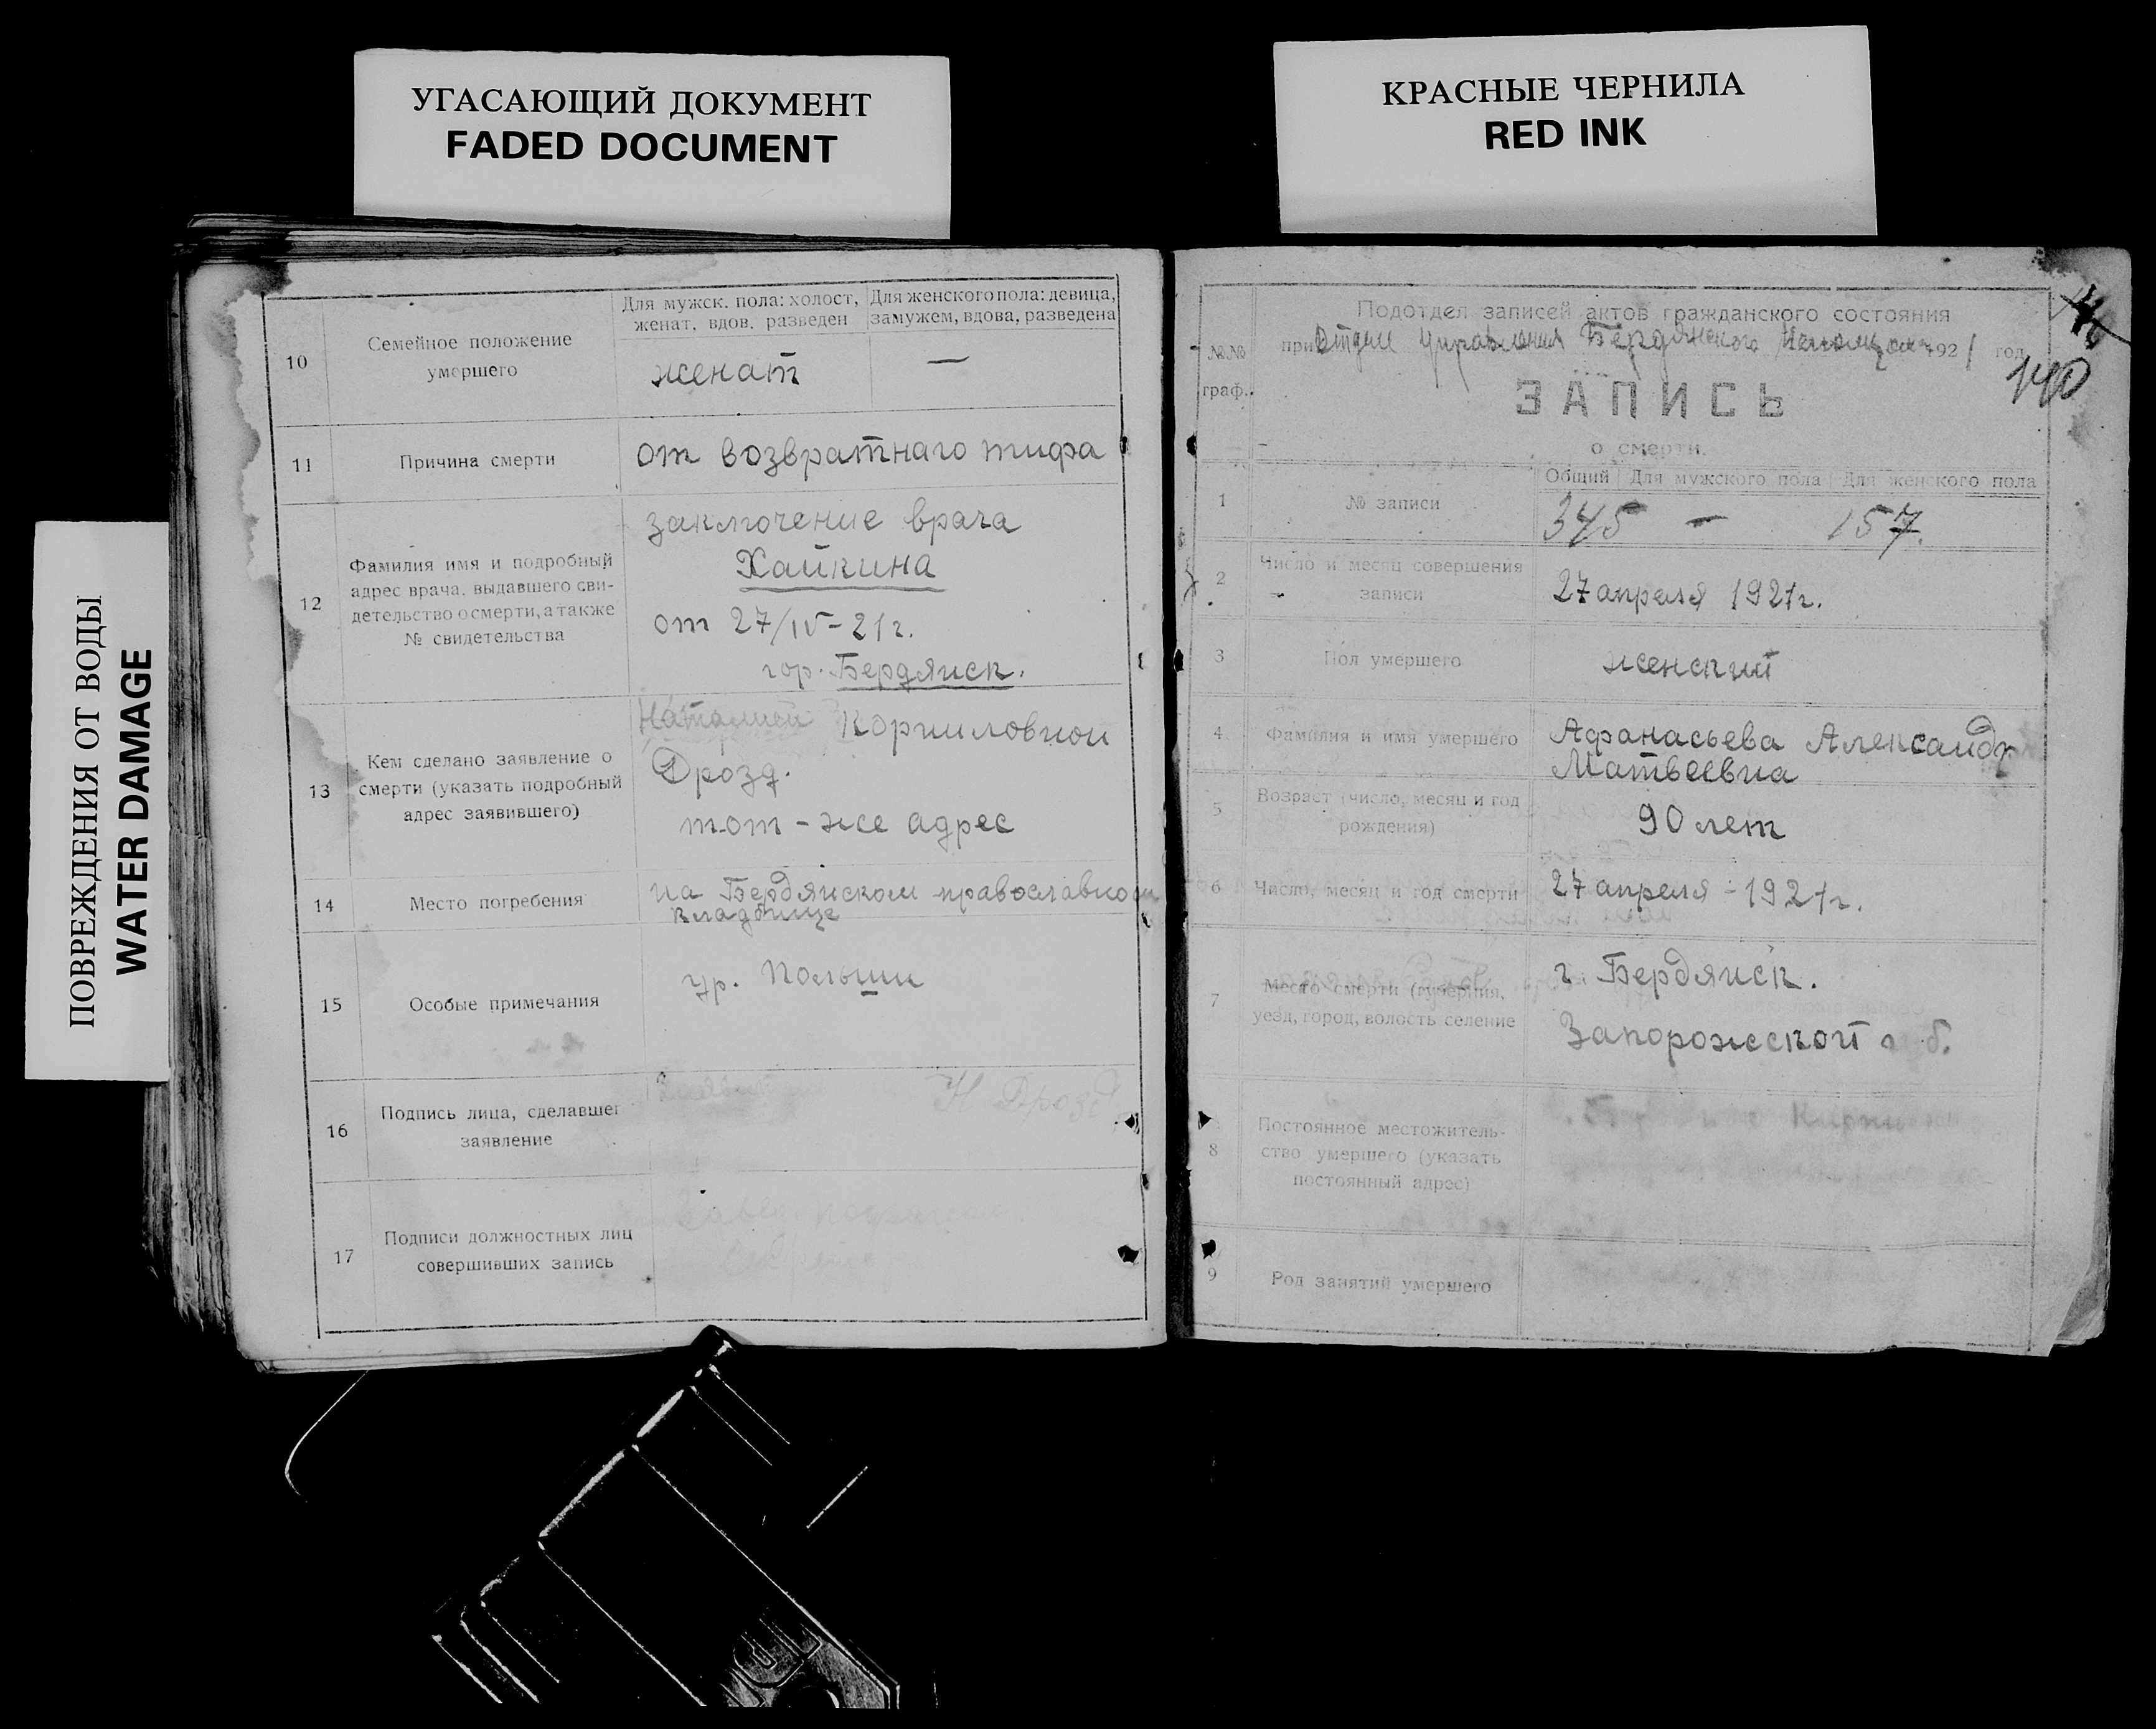 УГАСАЮЩИЙ ДОКУМЕНТ
FADED DOCUMENT
КРАСНЫЕ ЧЕРНИЛА
RED INK
ПОВРЕЖДЕНИЯ ОТ ВОДЫ
WATER DAMAGE
10
Семейное положение
умершего
Для мужск. пола: холост,
женат, вдов, разведен
Для женского пола: девица,
замужем, вдова, разведена
женат
—
11
Причина смерти
от возвратнаго тифа
12
Фамилия имя и подробный
адрес врача, выдавшего сви-
детельство о смерти, а также
№ свидетельства
заключение врача
Хайкина
от 27/IV-21г.
гор. Бердянск.
13
Кем сделано заявление о
смерти (указать подробный
адрес заявившего)
Наталией Корниловной
Дрозд.
тот-же адрес
14
Место погребения
на Бердянском православном
кладбище
15
Особые примечания
ур. Польши
16
Подпись лица, сделавшег
заявление
Н Дрозд
17
Подписи должностных лиц
совершивших запись
140
Подотдел записей актов гражданского состояния
№№
граф.
при Отделе Управления Бердянского 1921 год
ЗАПИСЬ
о смерти.
1
№ записи
Общий Для мужского пола Для женского пола
345 — 157.
2
Число и месяц совершения
записи
27 апреля 1921г.
3
Пол умершего
женский
4
Фамилия и имя умершего
Афанасьева Александр
Матвеевна
5
Возраст (число, месяц и год
рождения)
90 лет
6
Число, месяц и год смерти
27 апреля - 1921г.
7
Место смерти (губерния,
уезд, город, волость селение
г. Бердянск.
Запорожской губ.
8
Постоянное местожитель-
ство умершего (указать
постоянный адрес)
9
Род занятий умершего